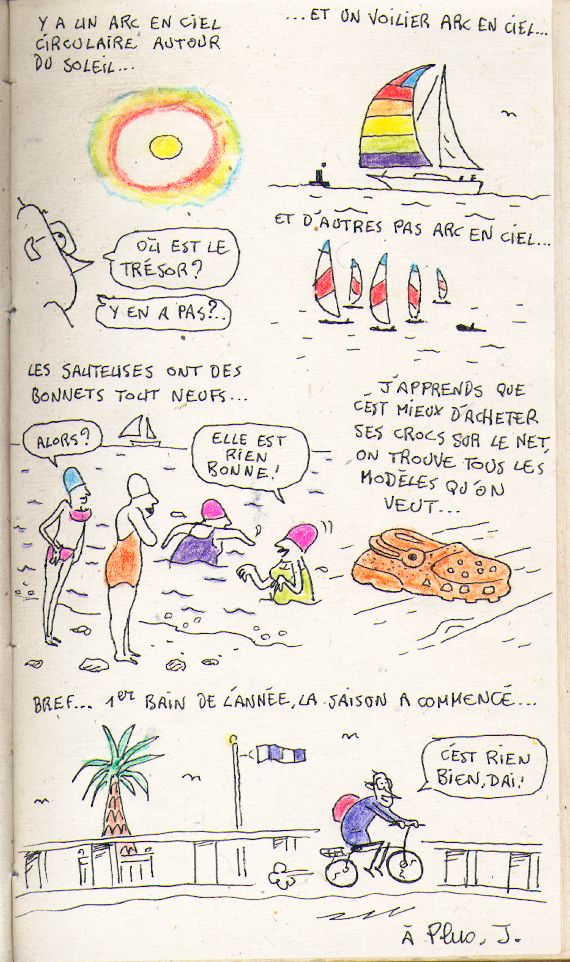 Y A UN ARC EN CIEL
CIRCULAIRE AUTOUR
DU SOLEIL...
...ET UN VOILIER ARC EN CIEL...
OÙ EST LE
TRÉSOR?
Y EN A PAS?..
ET D'AUTRES PAS ARC EN CIEL...
LES SAUTEUSES ONT DES
BONNETS TOUT NEUFS...
ALORS?
ELLE EST
RIEN
BONNE!
J'APPRENDS QUE
C'EST MIEUX D'ACHETER
SES CROCS SUR LE NET,
ON TROUVE TOUS LES
MODÈLES QU'ON
VEUT...
BREF... 1er BAIN DE L'ANNÉE, LA SAISON A COMMENCÉ...
C'EST RIEN
BIEN, DAI!
À Plus, J.